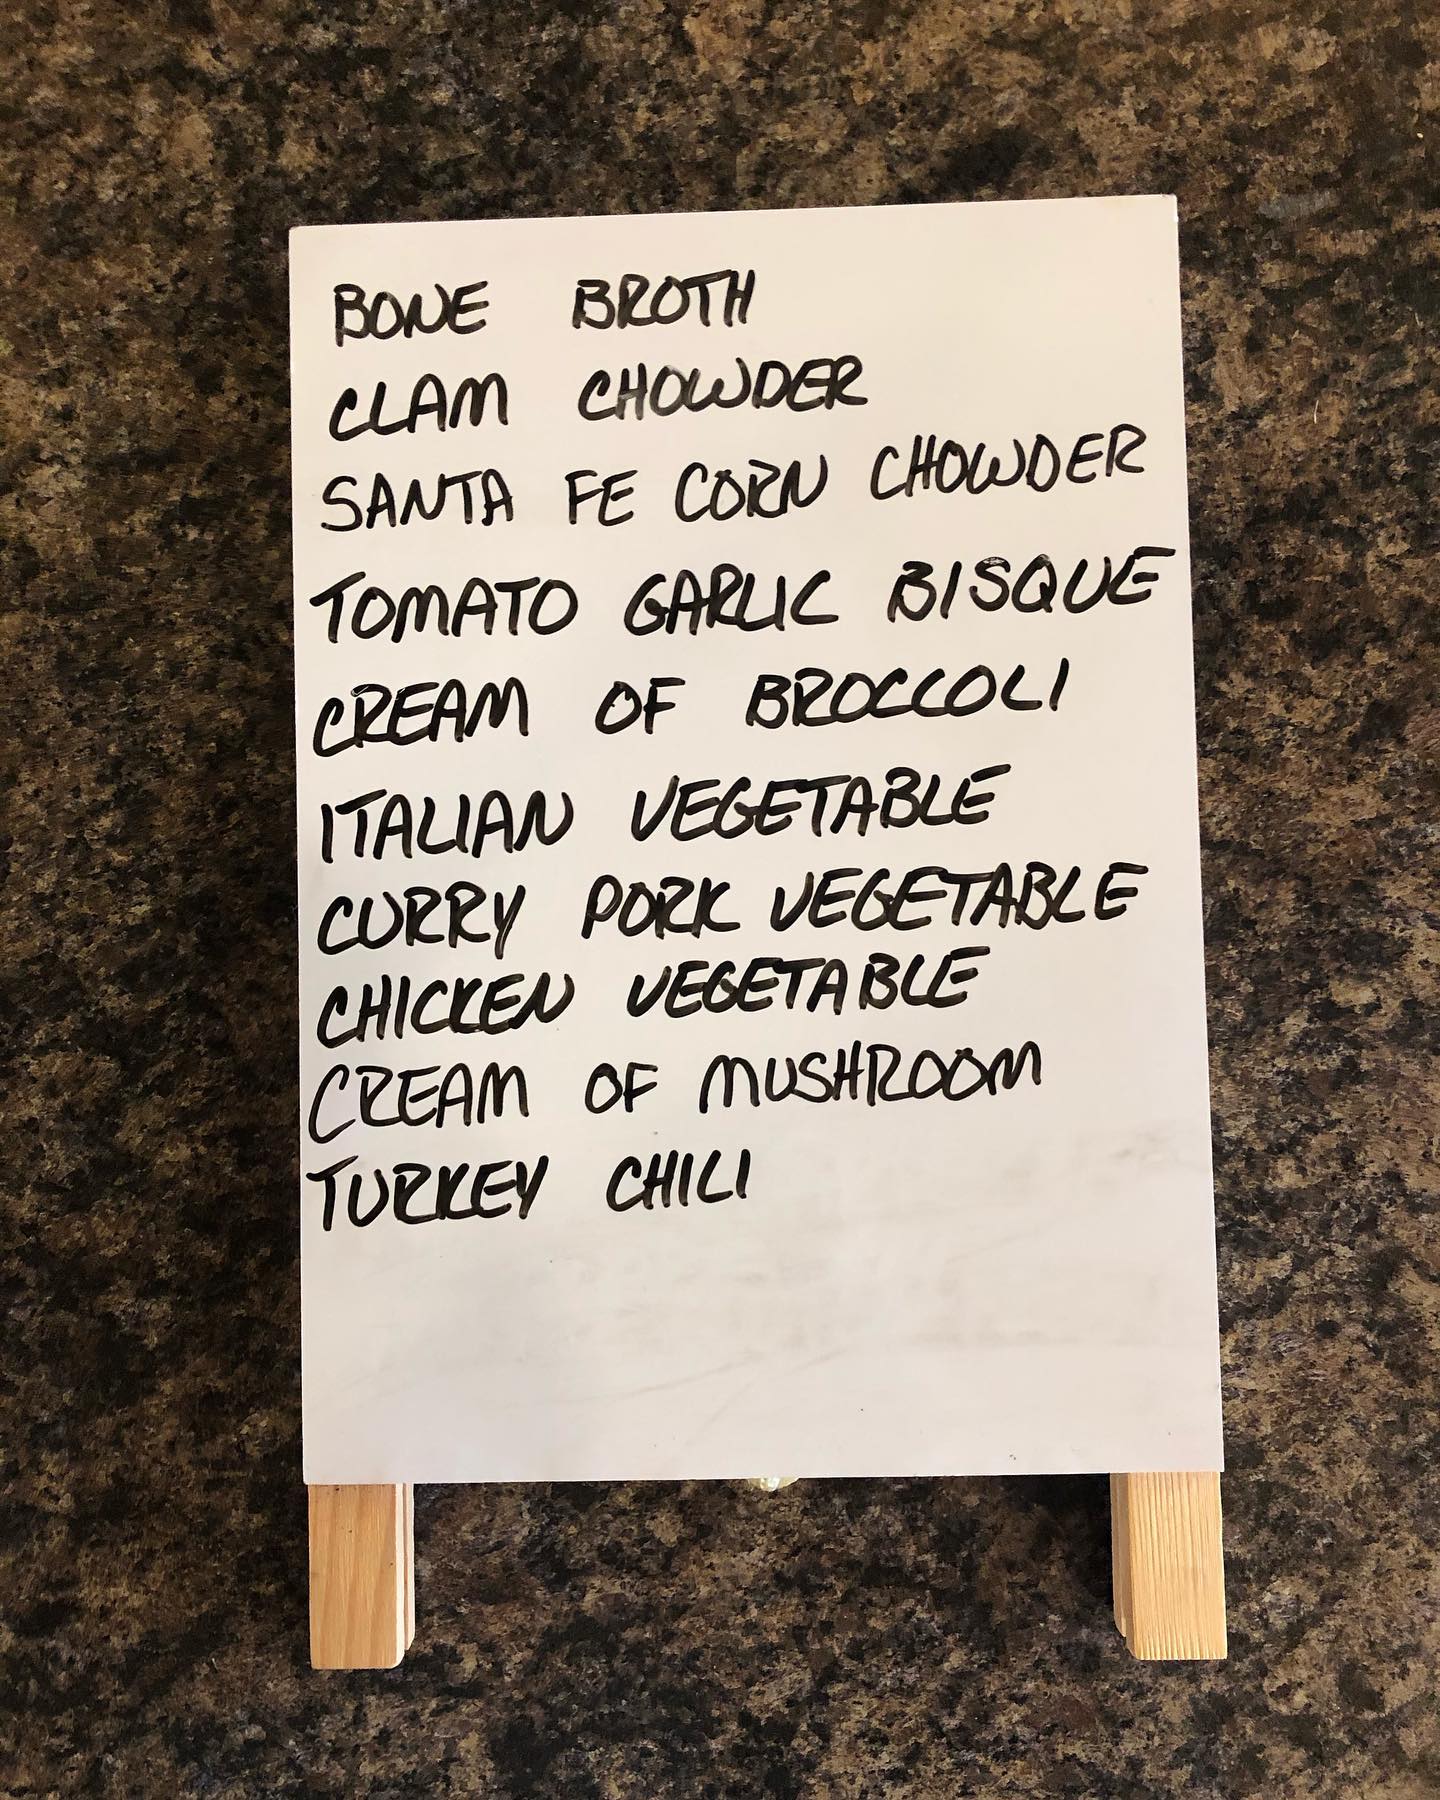 BONE BROTH
CLAM CHOWDER
SANTA FE CORN CHOWDER
TOMATO GARLIC BISQUE
CREAM OF BROCCOLI
ITALIAN VEGETABLE
CURRY PORK VEGETABLE
CHICKEN VEGETABLE
CREAM OF MUSHROOM
TURKEY CHILI